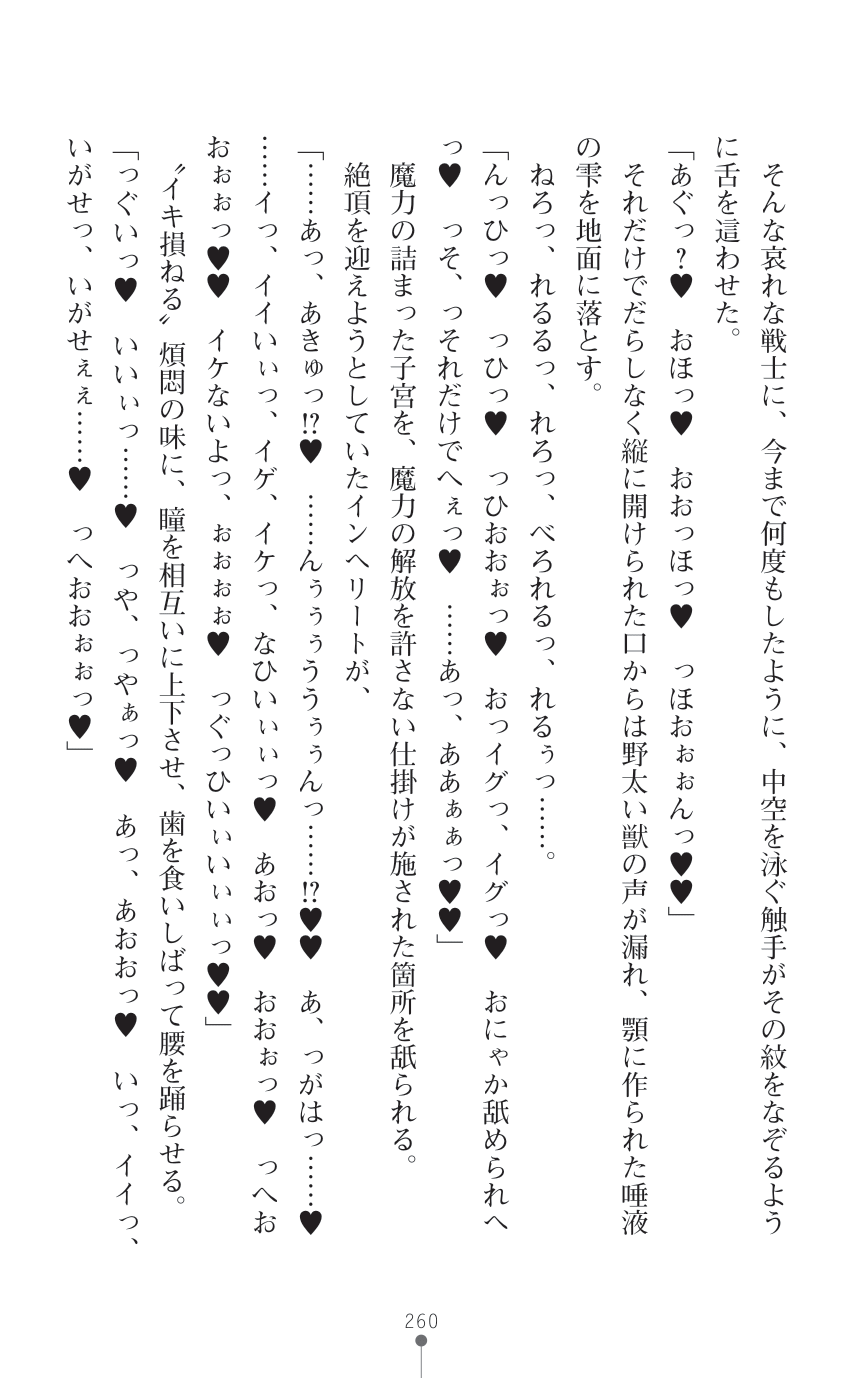 そんな哀れな戦士に、今まで何度もしたように、中空を泳ぐ触手がその紋をなぞるよう
に舌を這わせた。
「あぐっ？♥　おほっ♥　おおっほっ♥　っほおぉぉんっ♥♥」
　それだけでだらしなく縦に開けられた口からは野太い獣の声が漏れ、顎に作られた唾液
の雫を地面に落とす。
　ねろっ、れるるっ、れろっ、べろれるっ、れるぅっ……。
「んっひっ♥　っひっ♥　っひおおぉっ♥　おっイグっ、イグっ♥　おにゃか舐められへ
っ♥　っそ、っそれだけでへぇっ♥　……あっ、ああぁぁっ♥♥」
　魔力の詰まった子宮を、魔力の解放を許さない仕掛けが施された箇所を舐られる。
　絶頂を迎えようとしていたインヘリートが、
「……あっ、あきゅっ!?♥　……んぅぅぅううぅぅんっ……!?♥♥　あ、っがはっ……♥
……イっ、イイいぃっ、イゲ、イケっ、なひいぃぃっ♥　あおっ♥　おおぉっ♥　っへお
おぉぉっ♥♥　イケないよっ、ぉぉぉぉ♥　っぐっひいぃいぃぃっ♥♥」
　〝イキ損ねる〟煩悶の味に、瞳を相互いに上下させ、歯を食いしばって腰を踊らせる。
「っぐいっ♥　いいぃっ……♥　っや、っやぁっ♥　あっ、あおおっ♥　いっ、イイっ、
いがせっ、いがせぇぇ……♥　っへおおぉぉっ♥」
260